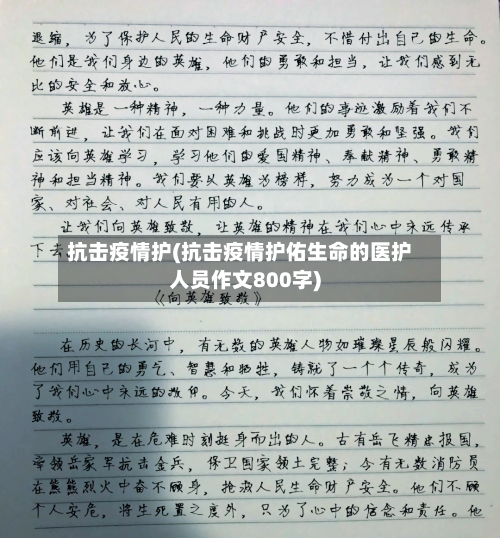 退缩，为了保护人民的生命财产安全，不惜付出自己的生命。
他们是我们身边的英雄，他们的勇敢和担当，让我们感到无
比的安全和放心。
英雄是一种精神，一种力量。他们的事迹激励着我们不
断前进，让我们在面对困难和挑战时更加勇敢和坚强。我们
应该向英雄学习，学习他们的爱国精神、奉献精神、勇敢精
神和担当精神。我们要以英雄为榜样，努力成为一个对国
家、对社会、对人民有用的人。
让我们向英雄致敬，让英雄的精神在我们心中永远传承
下去
抗击疫情护(抗击疫情护佑生命的医护
人员作文800字)
《向英雄致敬》
在历史的长河中，有无数的英雄人物如璀璨星辰般闪耀。
他们用自己的勇气、智慧和牺牲，铸就了一个个传奇，成为
了我们心中永远的敬仰。今天，我们怀着崇敬之情，向英雄
致敬。
英雄，是在危难时刻挺身而出的人。古有岳飞精忠报国，
率领岳家军抗击金兵，保卫国家领土完整；今有无数消防员
在熊熊烈火中奋不顾身，抢救人民生命财产安全。他们不顾
个人安危，将生死置之度外，只为了心中的信念和责任。他